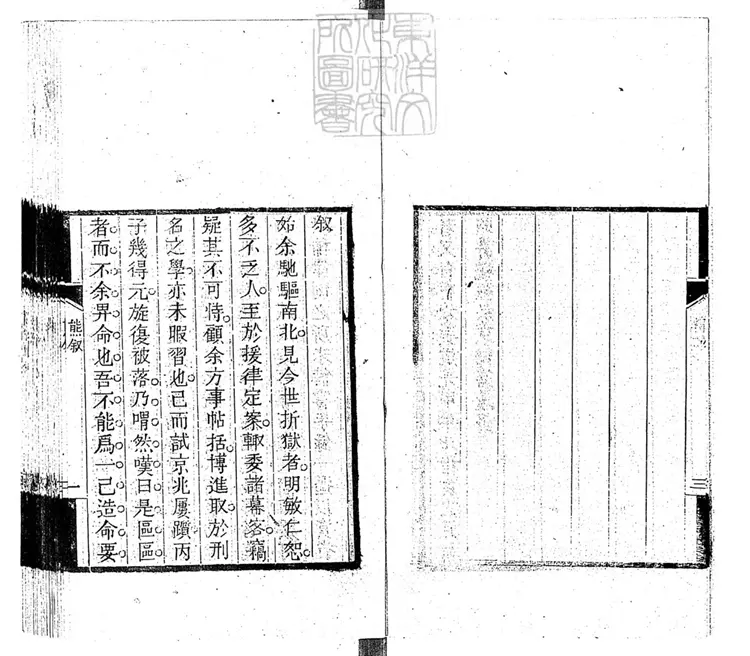 東洋文
化研究
所圖書
叙
始余馳驅南北見今世折獄者明敏仁恕
多不乏人至於援律定案輙委諸幕客竊
疑其不可恃顧余方事帖括博進取於刑
名之學亦未暇習也已而試京兆屢躓丙
子幾得元旋復被落乃喟然嘆曰是區區
者而不余畀命也吾不能爲一己造命要
熊叙
一
三